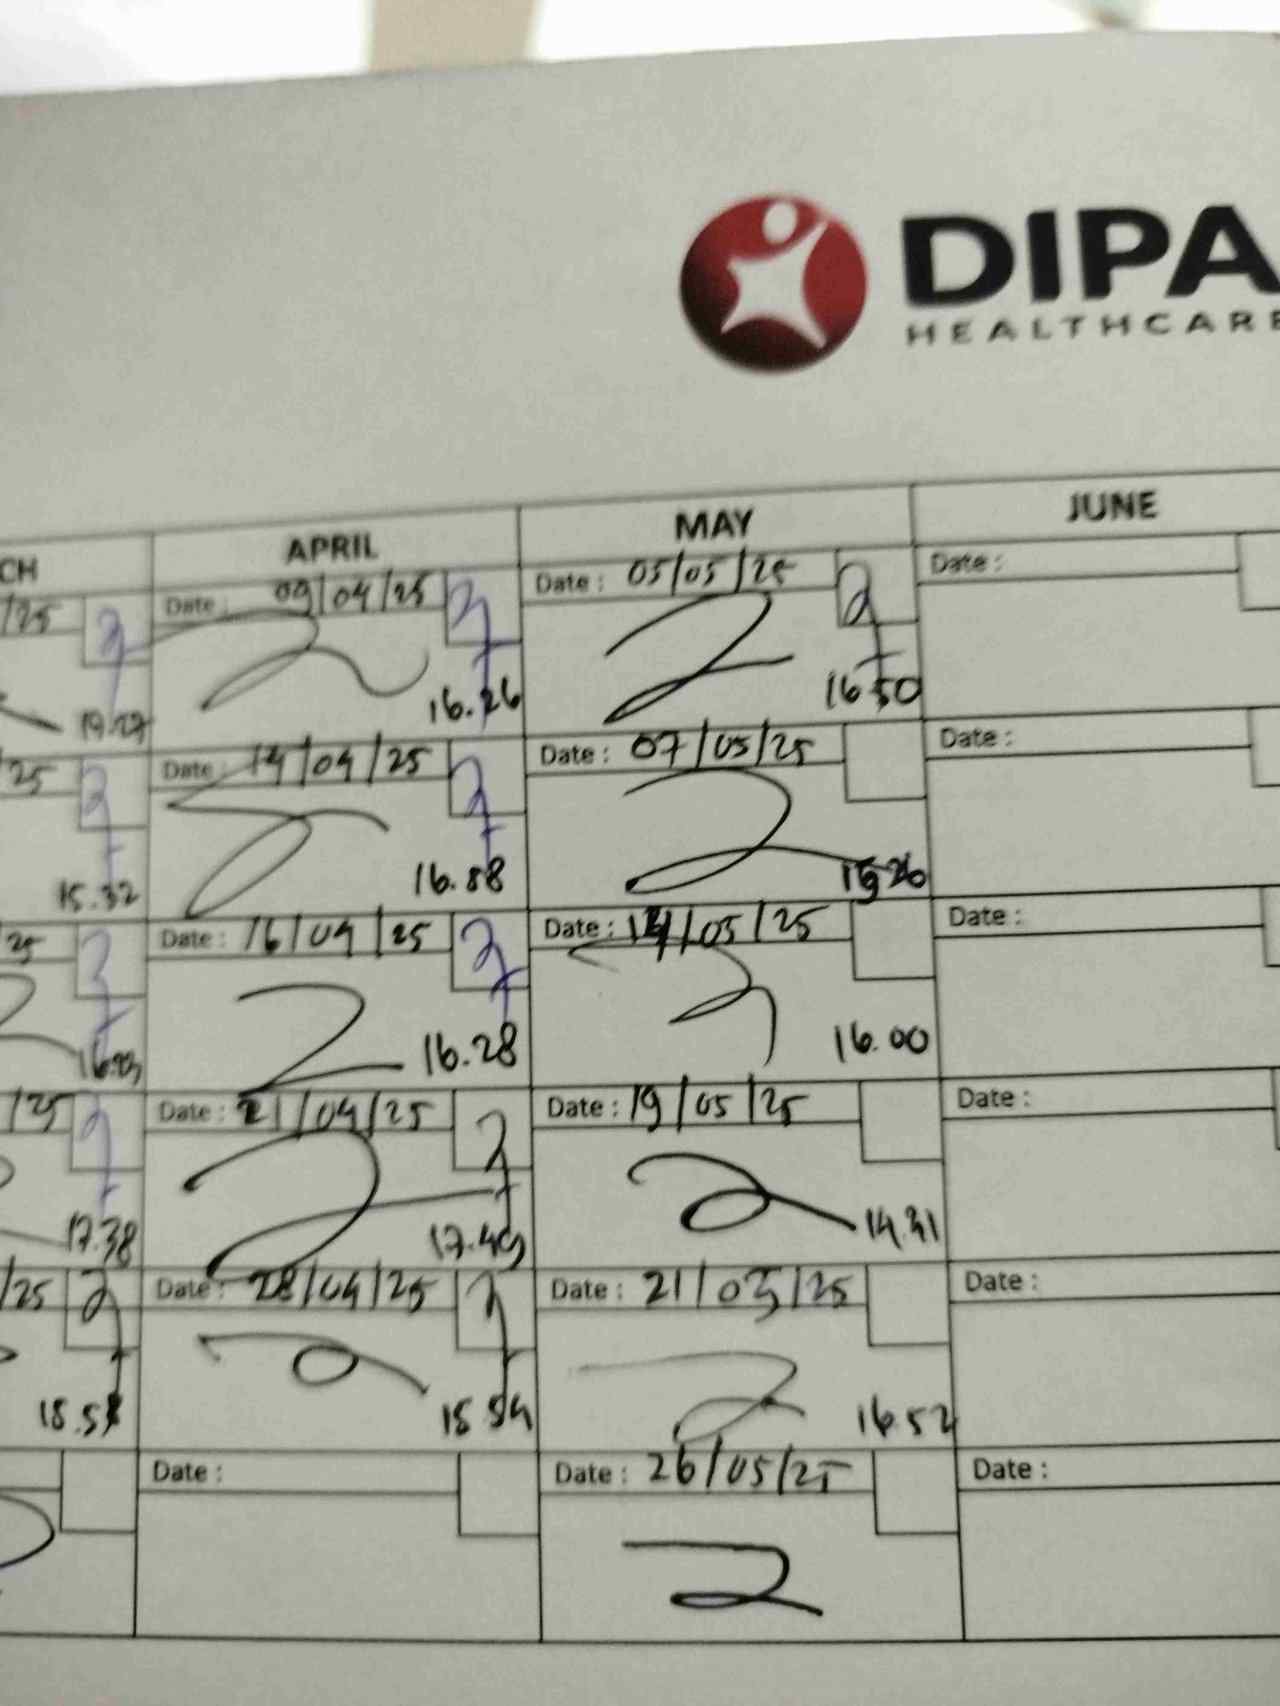 DIPA
HEALTHCARE
CH APRIL MAY JUNE
/25 Date : 09/04/25 Date : 05/05/25 Date :
16.26 16.50
25 Date : 14/04/25 Date : 07/05/25 Date :
15.32 16.58
25 Date : 16/04/25 Date : 14/05/25 Date :
16.28 16.00
/25 Date : 21/04/25 Date : 19/05/25 Date :
17.38 17.49
/25 Date : 28/04/25 Date : 21/05/25 Date :
16.52
Date : Date : 26/05/25 Date :